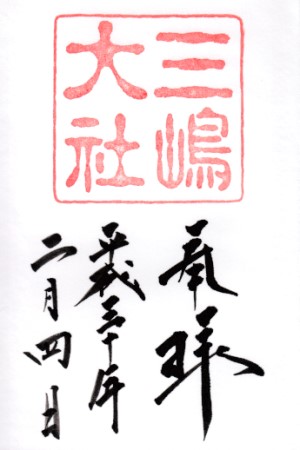 三嶋
大社
奉拝
平成三十年
二月四日